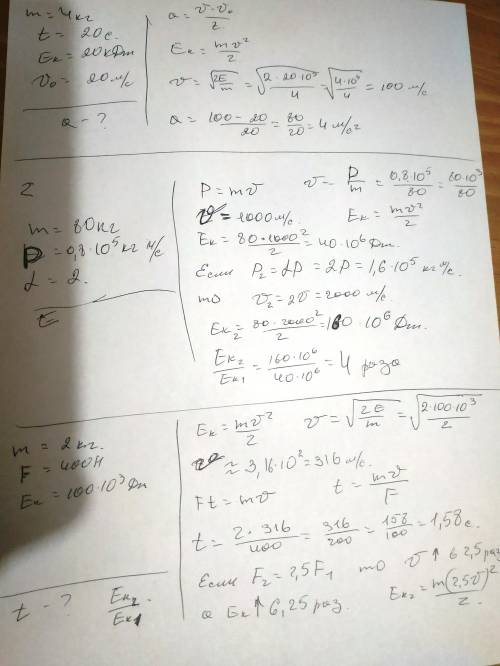 m = 4кг
t = 20с.
Eк = 20кДж
v₀ = 20м/с
a - ?
a = v-v₀/t
Eк = mv²/2
v = √2E/m = √2·20·10³/4 = √4·10⁴/4 = 100 м/с
a = 100-20/20 = 80/20 = 4 м/с²
2
m = 80кг
P = 0,8·10⁵ кг м/с
α = 2.
E
P = mv v = P/m = 0,8·10⁵/80 = 80·10³/80
v = 1000м/с. Eк = mv²/2
Eк = 80·1000²/2 = 40·10⁶ Дж.
Если P₂ = αP = 2P = 1,6·10⁵ кг м/с.
то v₂ = 2v = 2000 м/с.
Eк₂ = 80·2000²/2 = 160·10⁶ Дж.
Eк₂/Eк₁ = 160·10⁶/40·10⁶ = 4 раза
m = 2кг.
F = 400Н
Eк = 100·10³ Дж
t - ? Eк₂/Eк₁
Eк = mv²/2 v = √2E/m = √2·100·10³/2
v ≈ 3,16·10² = 316 м/с.
Ft = mv t = mv/F
t = 2·316/400 = 316/200 = 158/100 = 1,58с.
Если F₂ = 2,5F₁ то v ↑ в 2,5 раз
а Eк ↑ 6,25 раз. Eк₂ = m(2,5v)²/2.